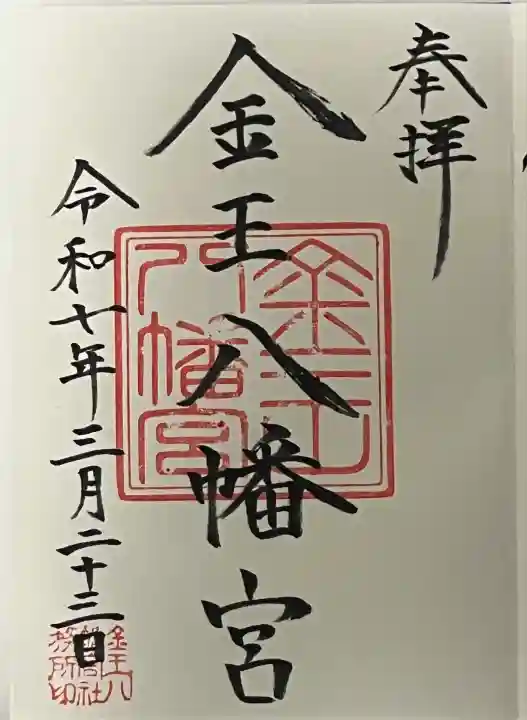 奉拝
金王八幡宮
令和七年三月二十三日
金王
八幡宮
金王八
幡宮社
務所印